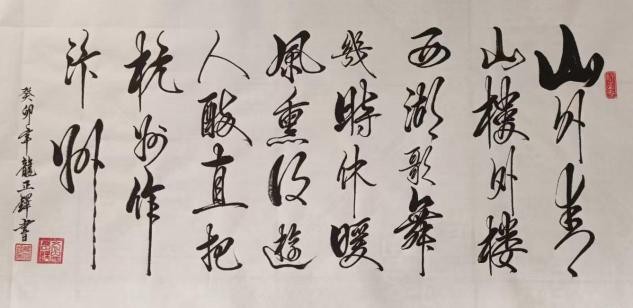 山外青
山楼外楼
西湖歌舞
幾時休暖
風熏得遊
人醉直把
杭州作
汴州
癸卯年龍正書